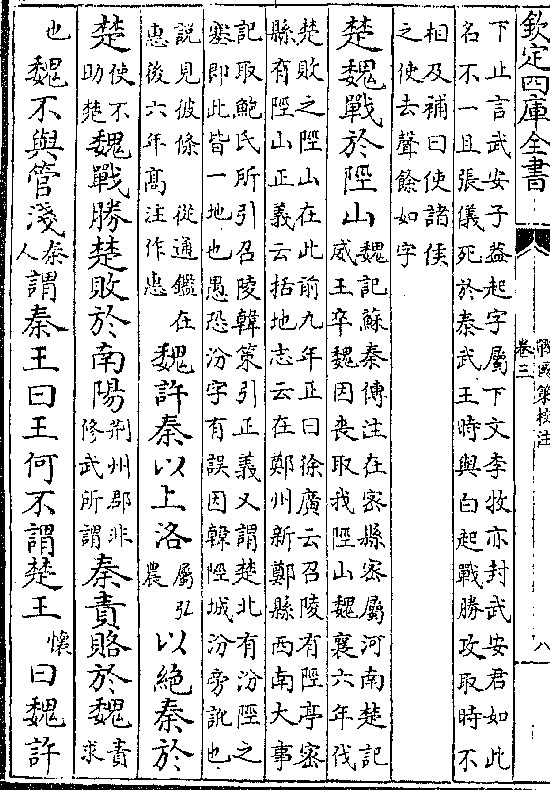 欽定四庫全書
戰國策校注
卷三
八
下止言武安子益起字屬下文李牧亦封武安君如此
名不一且張儀死於秦武王時與白起戰勝攻取時不
相及補曰使諸侯
之使去聲餘如字
楚魏戰於陘山魏記蘇秦傳注在密縣密屬河南楚記
威王卒魏因喪取我陘山魏襄六年伐
楚敗之陘山在此前九年正曰徐廣云召陵有陘亭密
縣有陘山正義云括地志云在鄭州新鄭縣西南大事
記取鮑氏所引召陵韓策引正義又謂楚北有汾陘之
塞即此皆一地也愚恐汾字有誤因韓陘城汾旁訛也
說見彼條 從通鑑在
惠後六年高注作惠 魏許秦以上洛屬弘農以絕秦於
楚使不助楚魏戰勝楚敗於南陽荆州郡非修武所謂秦責賂於魏責求
也 魏不與管淺秦人謂秦王曰王何不謂楚王懷曰魏許